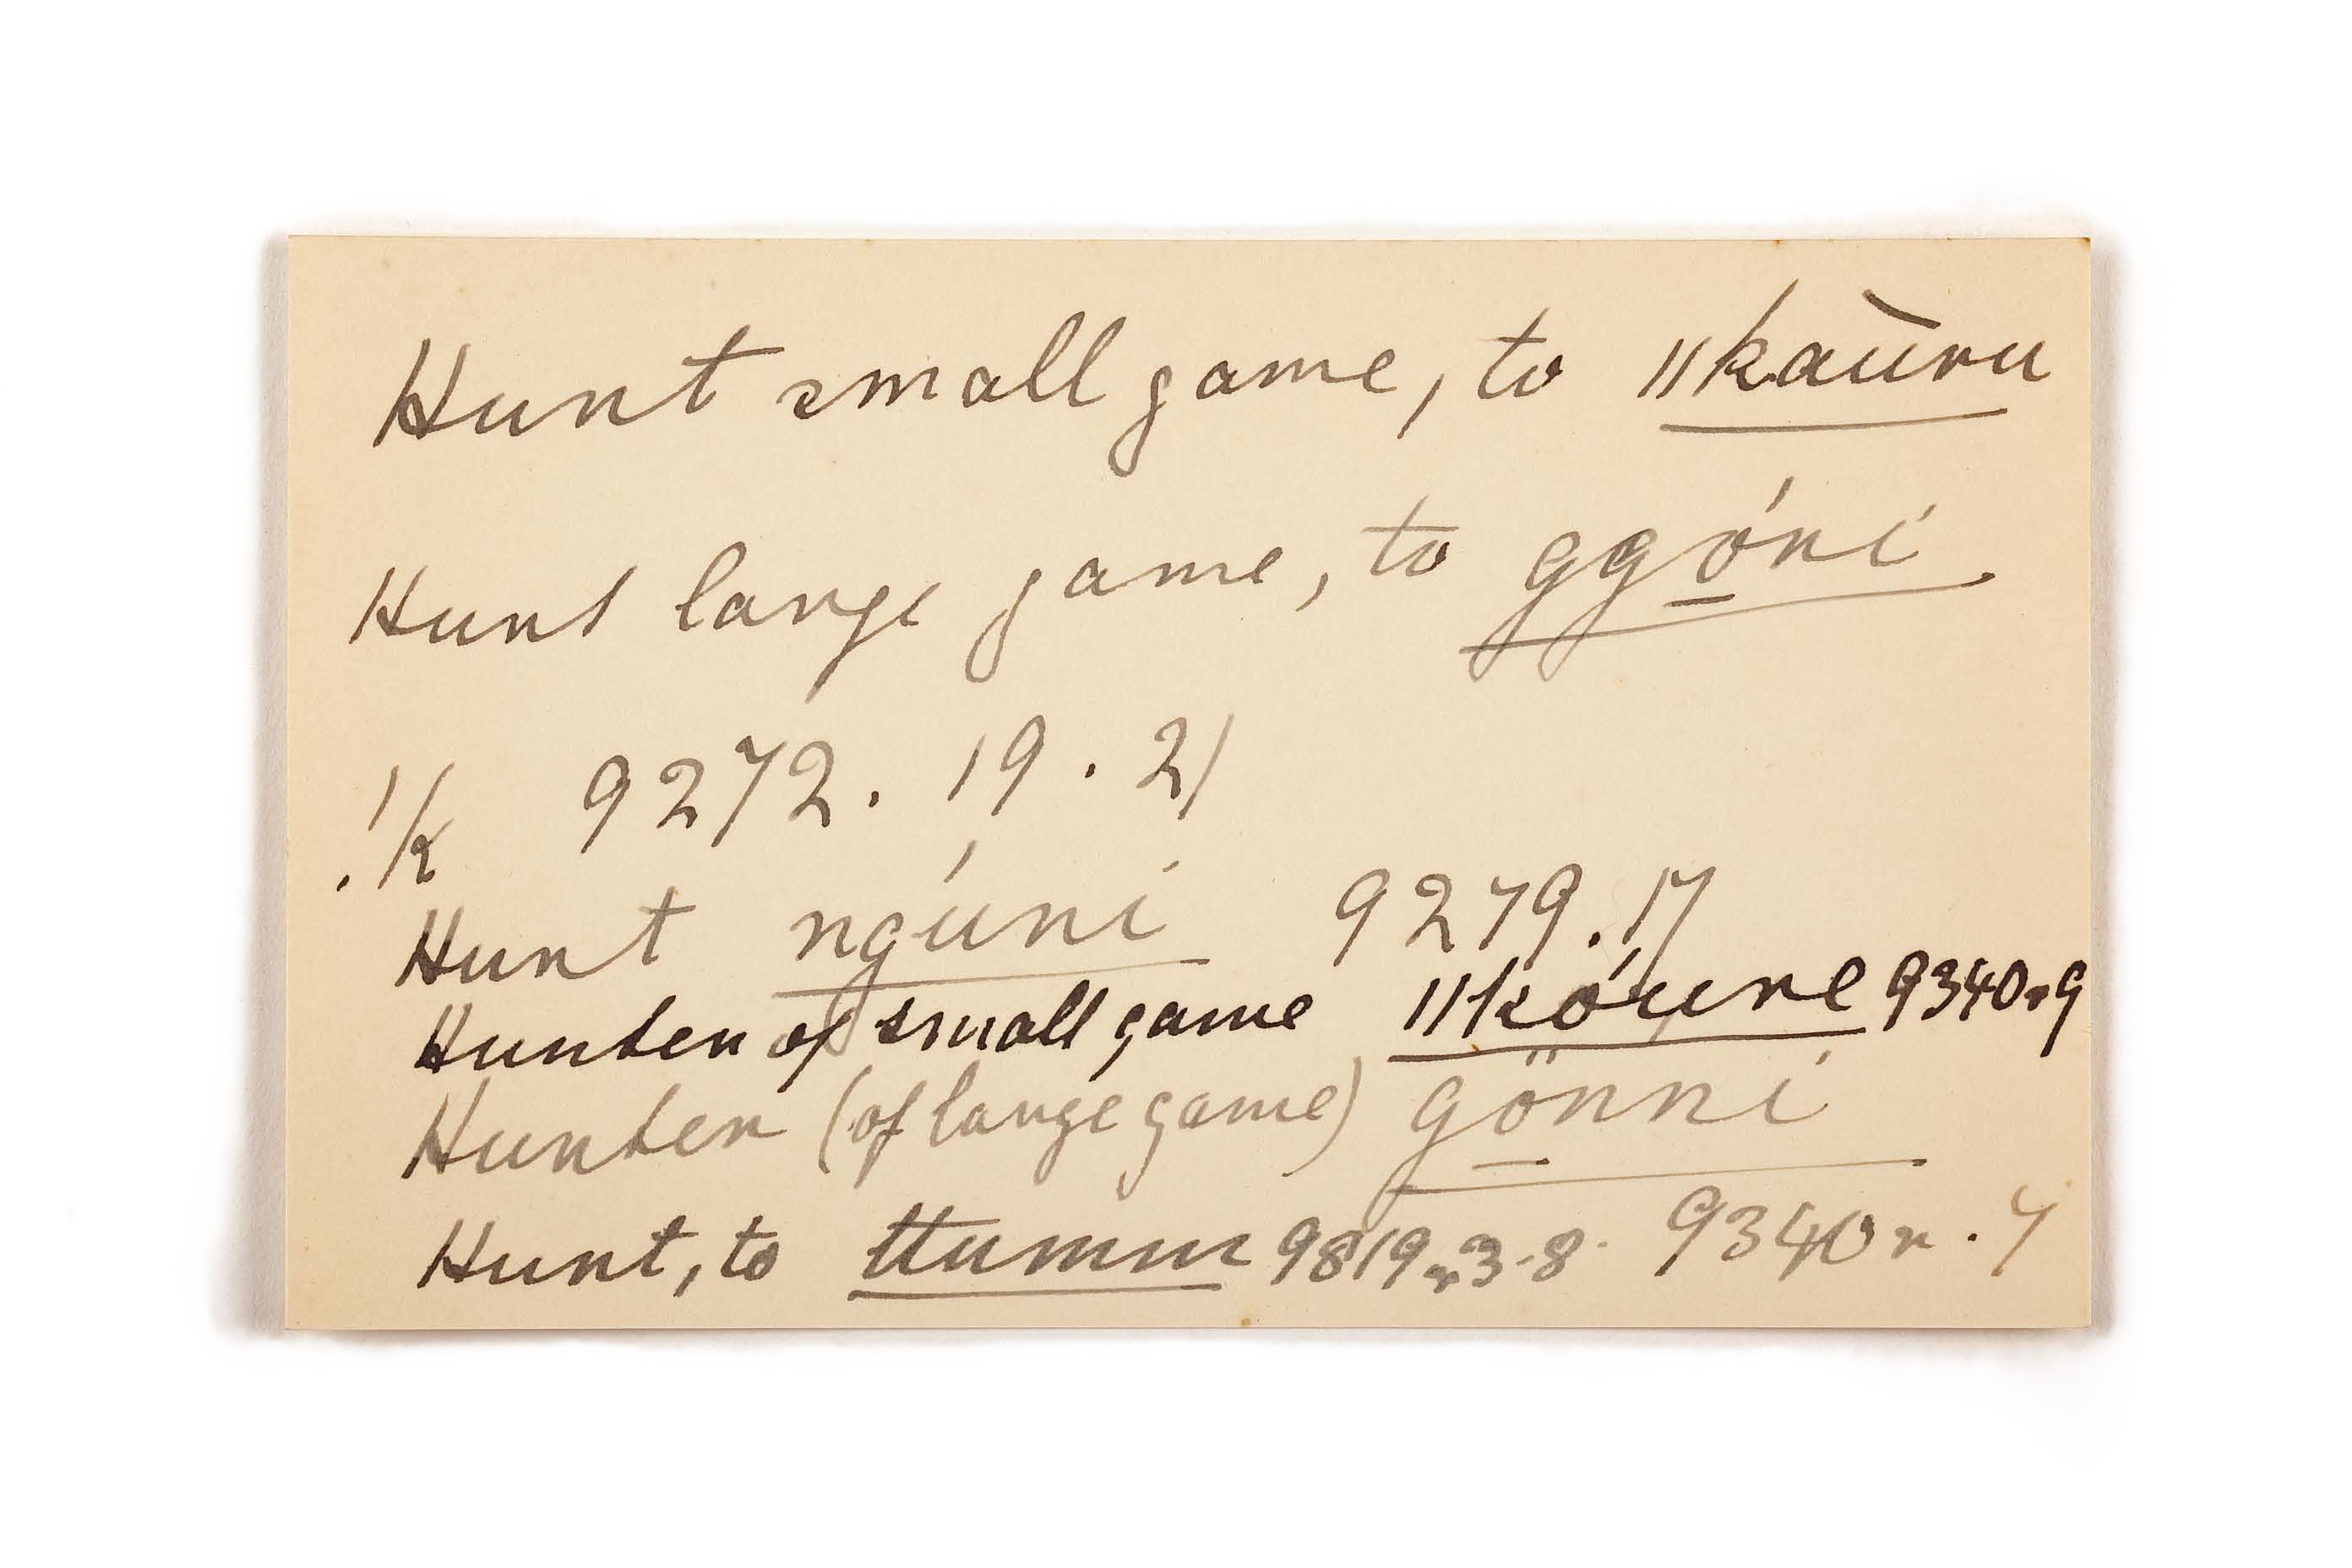 Hunt small game, to ǁkaūru
Hunt large game, to ggó̱ni
!k 9272. 19. 21
Hunt ngúni 9279.17
Hunter of small game ǁkóúre 9340r9
Hunter (of large game) gö̱nni
Hunt, to ttumm 9819r.3-8. 9340r.7